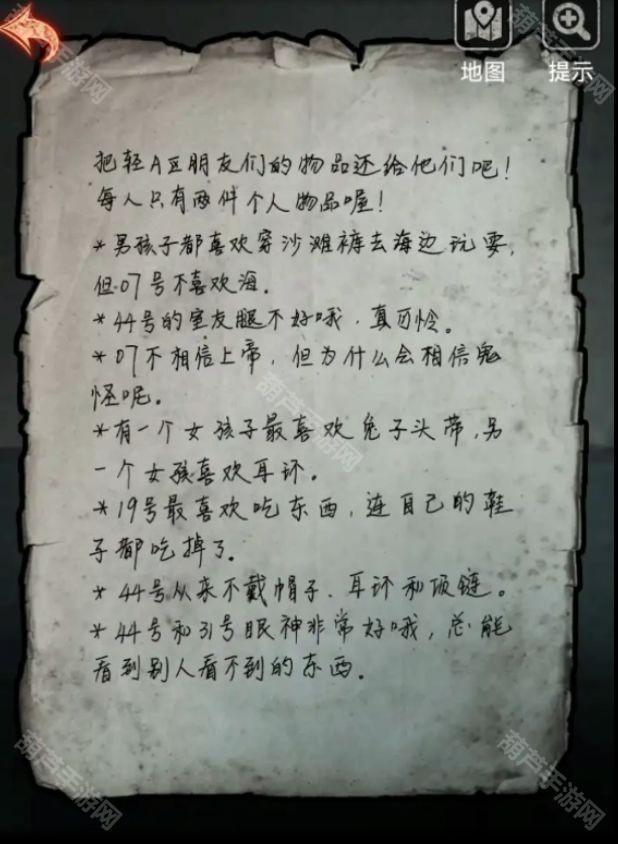 地图
提示
把轻A区朋友们的物品还给他们吧！
每人只有两件个人物品喔！
*男孩子都喜欢穿沙滩裤去海边玩耍，
但07号不喜欢海。
*44号的室友腿不好哦，真可怜。
*07不相信上帝，但为什么会相信鬼
怪呢。
*有一个女孩子最喜欢兔子头带，另
一个女孩喜欢耳环。
*19号最喜欢吃东西，连自己的鞋
子都吃掉了。
*44号从来不戴帽子、耳环和项链。
*44号和31号眼神非常好哦，总能
看到别人看不到的东西。
葫芦手游网
葫芦手游网
葫芦手游网
葫芦手游网
葫芦手游网